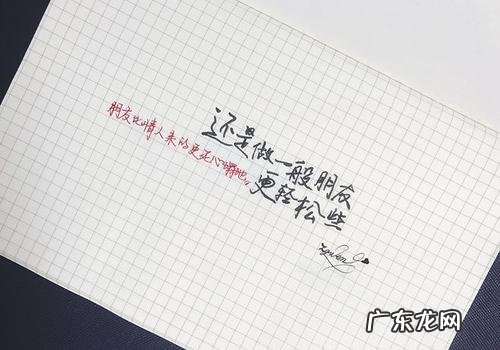 还是做一般朋友
更轻松些
朋友比情人来的更死心塌地
广东龙网